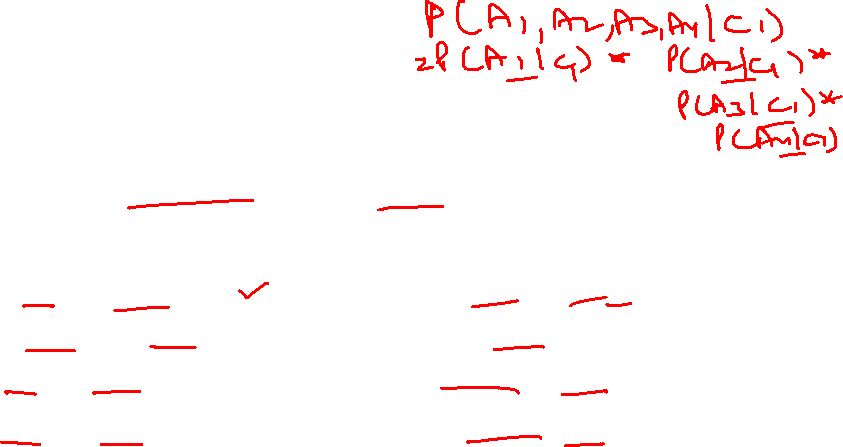 P(A1,A2,A3,A4|C1)
=P(A1|C1) * P(A2|C1) *
P(A3|C1)*
P(A4|C1)